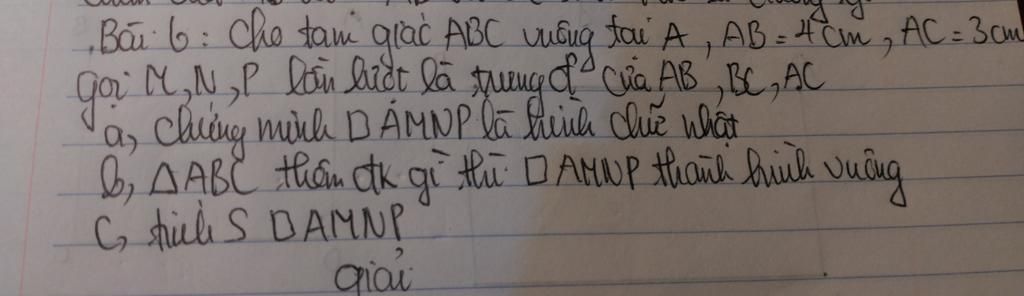 Bài 6: Cho tam giác ABC vuông tại A, AB = 4 cm, AC = 3 cm
gọi M, N, P lần lượt là trung đ² của AB, BC, AC
a, chứng minh □ AMNP là hình chữ nhật
b, △ABC thêm đk gì thì □ AMNP thành hình vuông
c, tính S □ AMNP
giải